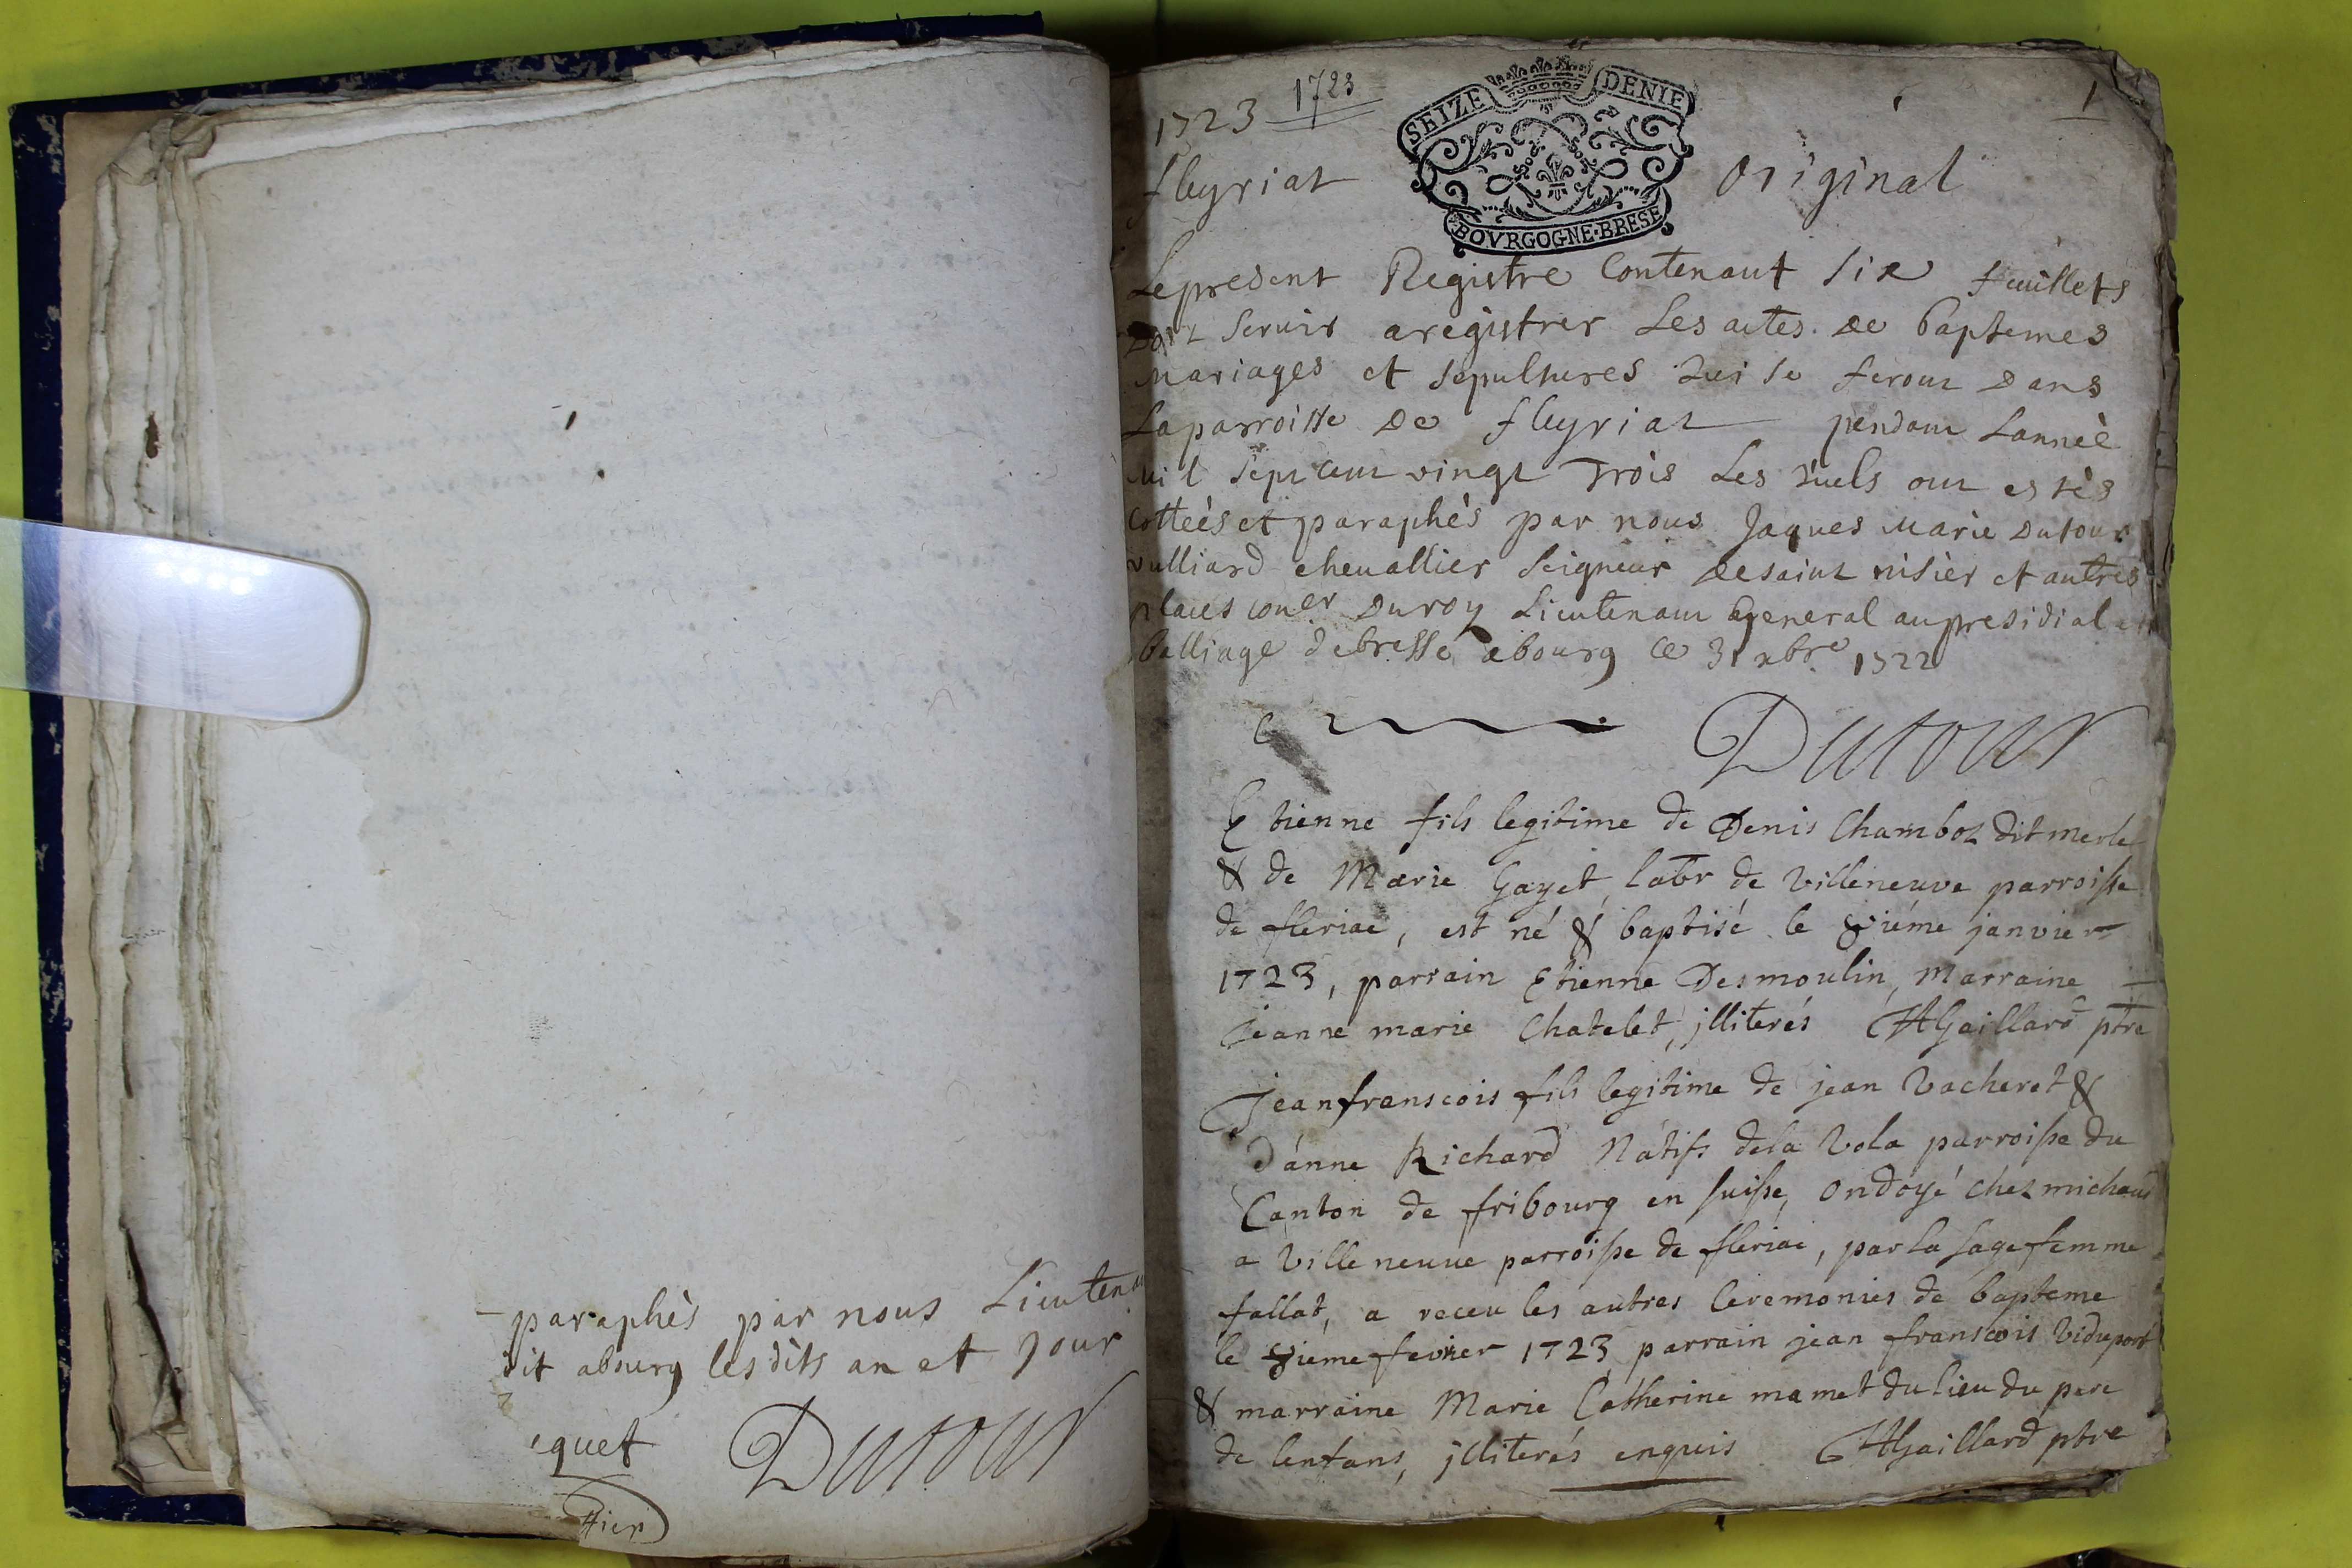 paraphès par nous Lieuten
dit abourg lesdits an et jour
quet Dutour
1723 1723
SEIZE DENIE
BOVRGOGNE·BRESE
1
fleyriat Original
Lepresent Registre Contenant six feuillets
Doit Seruir aregistrer Les actes de baptemes
Mariages et sepultures qui se feront Dans
Laparroisse De fleyriat pendant Lanneè
Mil Sept cent vingt Trois Les quels ont estès
Cotteès et paraphès par nous Jaques Marie Dutour
vulliard cheuallier Seigneur Desaint nisier et autres
places coner Duroy Lieutenant General aupresidial et
balliage debresse abourg Ce 31 xbre 1722
Dutour
Etienne fils legitime de Denis Chamboz dit merle
& de Marie Gayet labr de Villeneuve parroisse
de fleriac, est né & baptisé le 8iéme janvier
1723, parrain Etienne Desmoulin, Marraine
jeanne marie Chatelet, jlliterés Gaillard ptre
Jeanfranscois fils legitime de jean Vacheret &
d'anne Richard Natifs dela Vola parroisse du
Canton de fribourg en suisse, ondoyé chez michaud
a Ville neuue parroisse de fleriac, par la sage femme
fallat, a receu les autres Ceremonies de bapteme
le 8ieme fevrier 1723 parrain jean franscois Viduport
& marraine Marie Catherine mamet du lieu du pere
de lenfans, jlliterés enquis Gaillard ptre